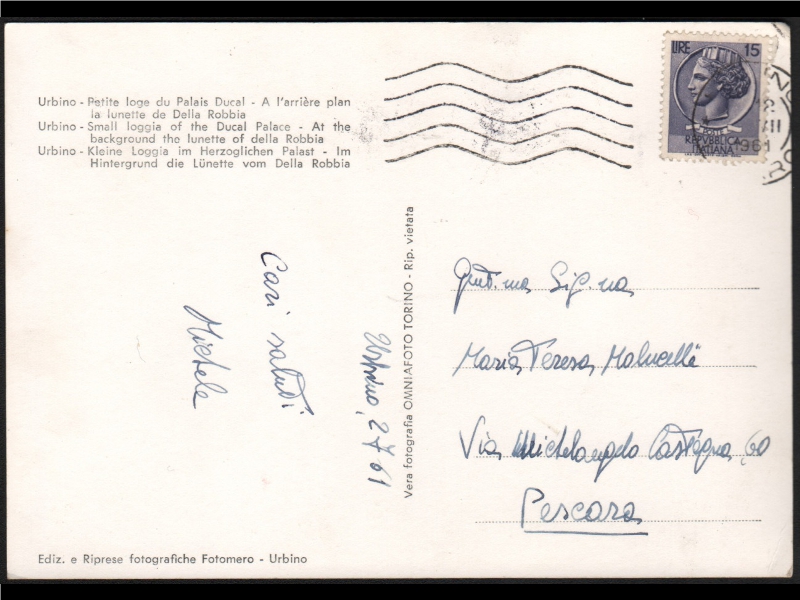 Urbino - Petite loge du Palais Ducal - A l'arrière plan
la lunette de Della Robbia
Urbino - Small loggia of the Ducal Palace - At the
background the lunette of della Robbia
Urbino - Kleine Loggia im Herzoglichen Palast - Im
Hintergrund die Lünette vom Della Robbia
LIRE 15
POSTE
REPVBBLICA
ITALIANA
1961
Cari saluti
Michele
Urbino, 2 7 61
Vera fotografia OMNIAFOTO TORINO - Rip. vietata
Gent.ma Sig.na
Maria Teresa Malucelli
Via Michelangelo Castagna, 60
Pescara
Ediz. e Riprese fotografiche Fotomero - Urbino